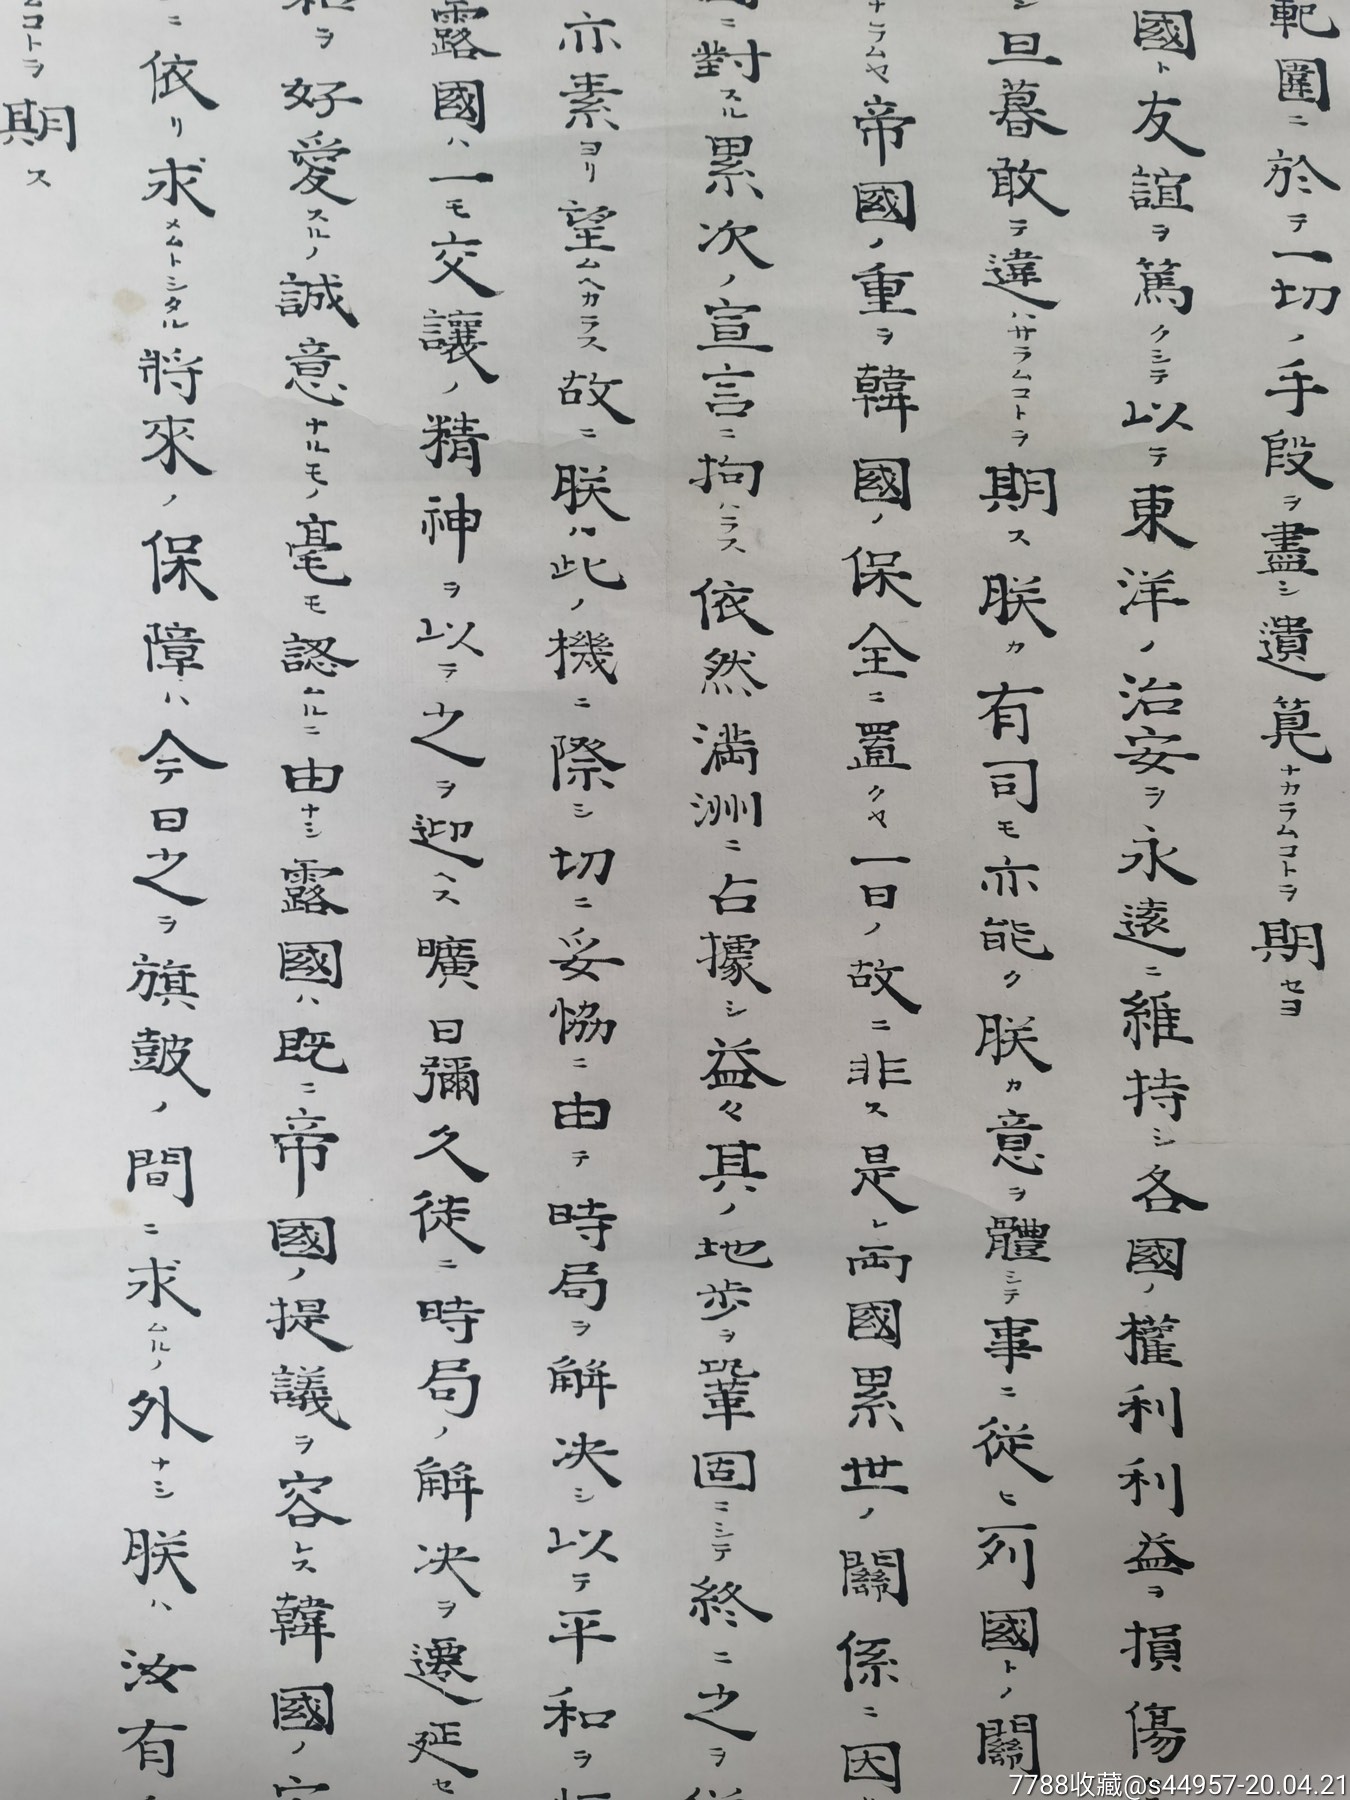 範圍ニ於テ一切ノ手段ヲ盡シ遺筭ナカラムコトヲ期セヨ
國ト友誼ヲ篤クシテ以テ東洋ノ治安ヲ永遠ニ維持シ各國ノ權利利益ヲ損傷
シ旦暮敢テ違ハサラムコトヲ期ス朕カ有司モ亦能ク朕カ意ヲ體シテ事ニ從ヒ列國トノ關
ナラムヤ帝國ノ重ヲ韓國ノ保全ニ置クヤ一日ノ故ニ非ス是レ両國累世ノ關係ニ因
ニ對スル累次ノ宣言ニ拘ハラス依然満洲ニ占據シ益々其ノ地歩ヲ鞏固ニシテ終ニ之ヲ
亦素ヨリ望ムヘカラス故ニ朕ハ此ノ機ニ際シ切ニ妥協ニ由テ時局ヲ解決シ以テ平和ヲ
露國ハ一モ交讓ノ精神ヲ以テ之ヲ迎ヘス曠日彌久徒ニ時局ノ解決ヲ遷延セ
和ヲ好愛スルノ誠意ナルモノ毫モ認ムルニ由ナシ露國ハ既ニ帝國ノ提議ヲ容レス韓國ノ
ニ依リ求メムトシタル將來ノ保障ハ今日之ヲ旗鼓ノ間ニ求ムルノ外ナシ朕ハ汝有
ムコトヲ期ス
7788收藏@s44957-20.04.21